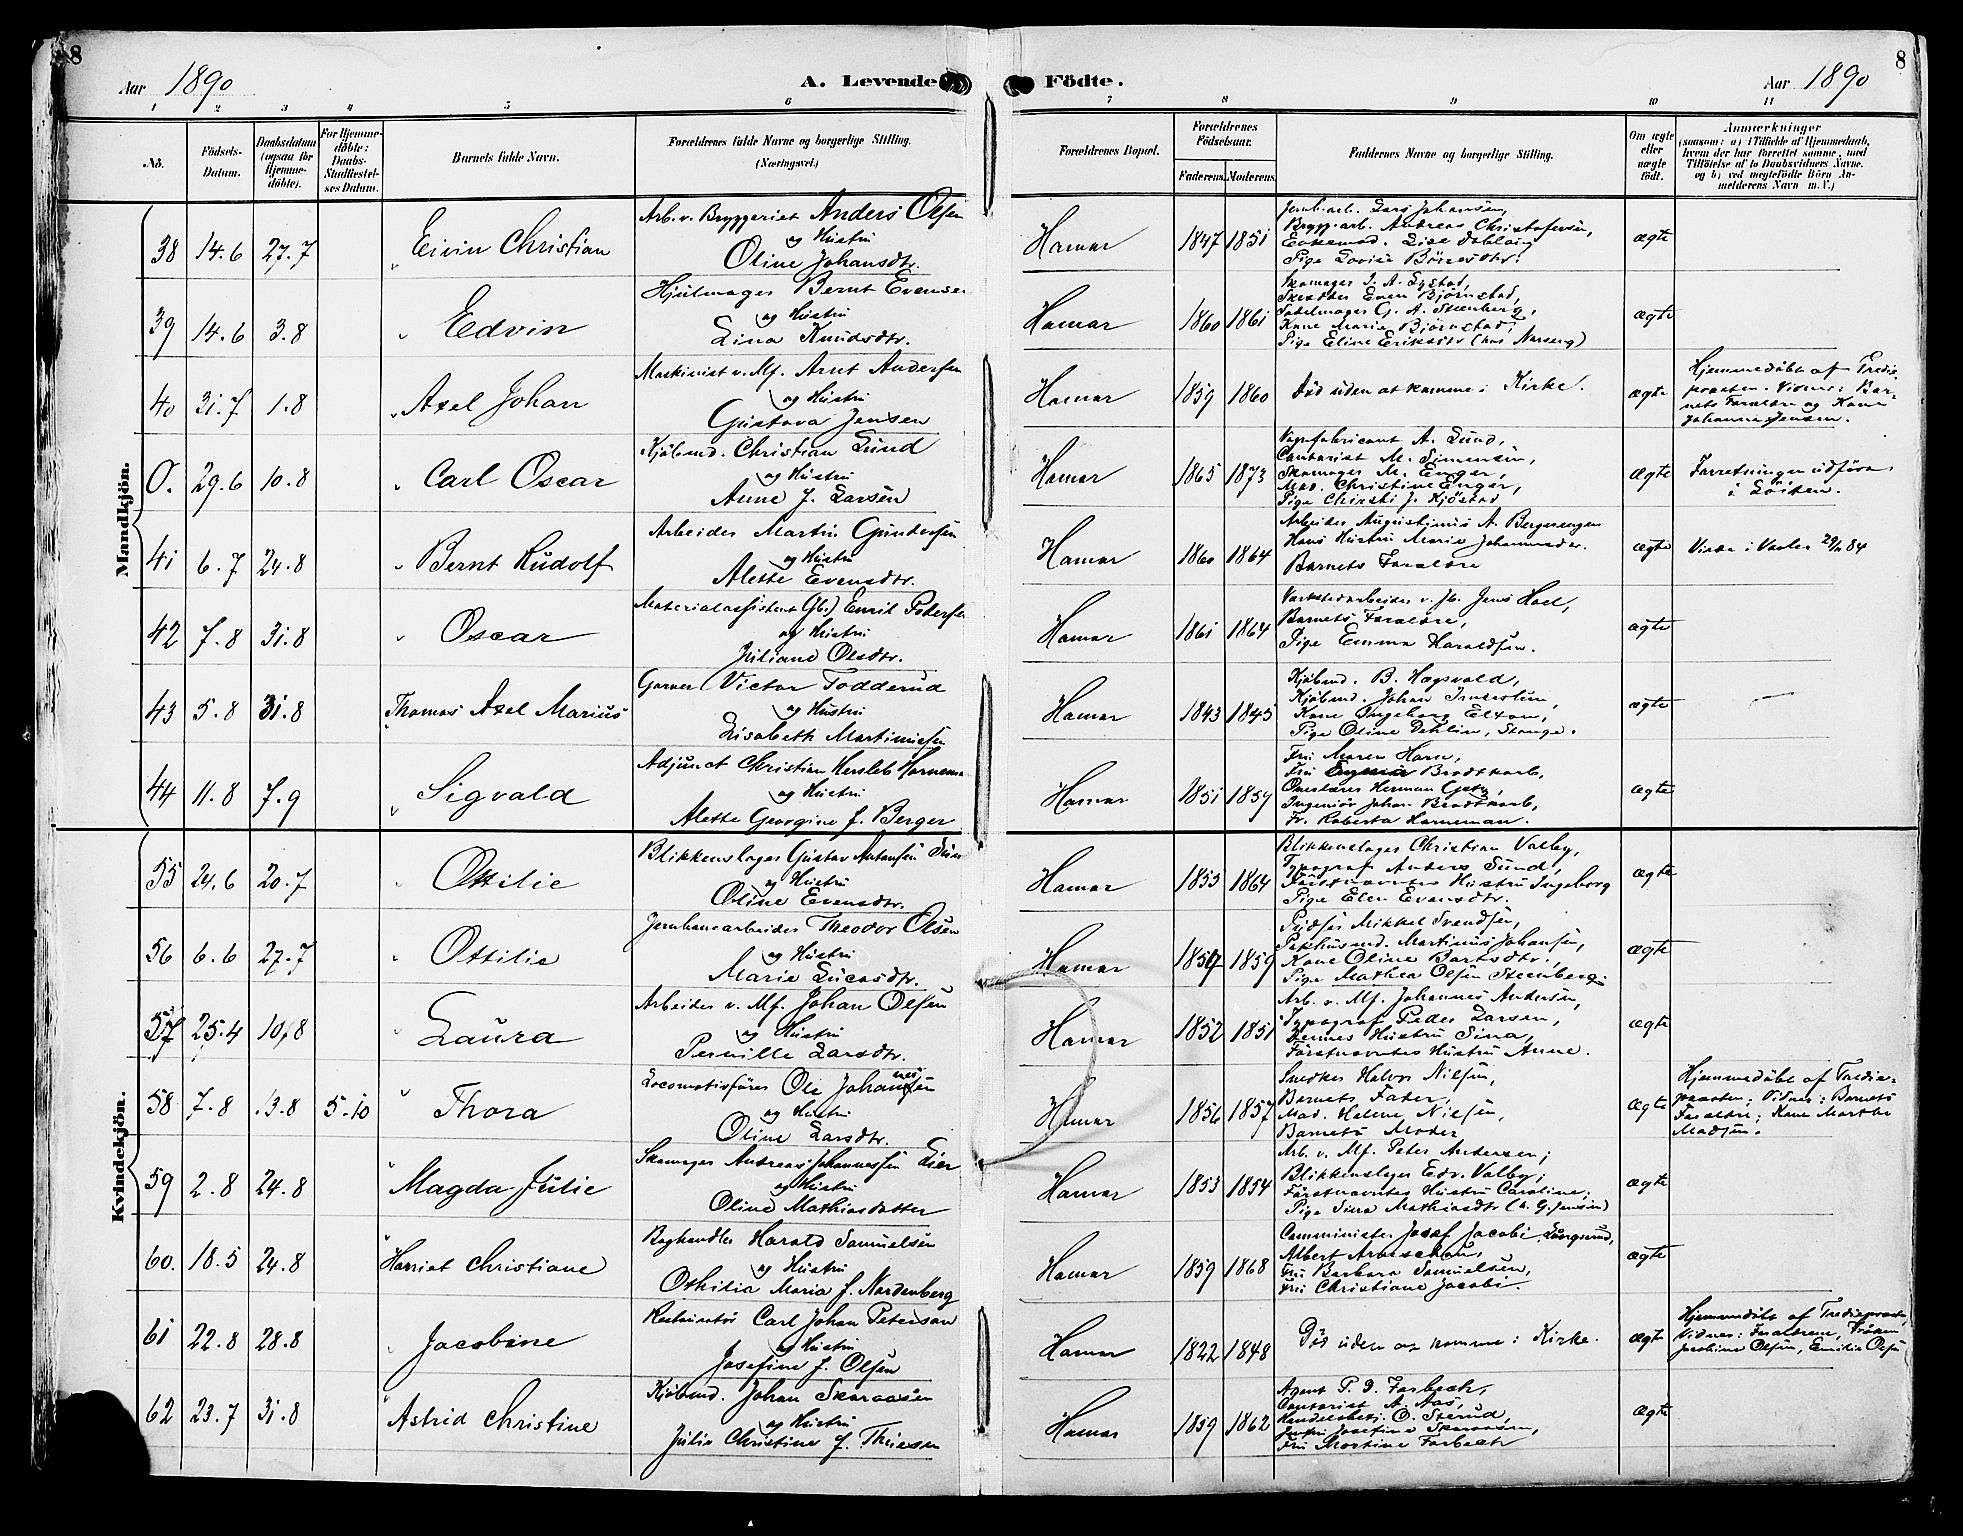 8
8
Aar 1890
A. Levende Födte.
Aar 1890
1 2 3 4 5 6 7 8 9 10 11
No.
Födsels-Datum.
Daabsdatum (ogsaa for Hjemmedöbte).
For Hjemmedöbte: Daabs-Stadfæstelses Datum.
Barnets fulde Navn.
Forældrenes fulde Navne og borgerlige Stilling. (Næringsvei.)
Forældrenes Bopæl.
Forældrenes Födselsaar.
Faderens. Moderens.
Faddernes Navne og borgerlige Stilling.
Om ægte eller uægte födt.
Anmærkninger
(saasom: a) i Tilfælde af Hjemmedaab, hvem der har forrettet samme, med Tilföielse af to Daabsvidners Navne. og b) ved uægtefödte Börn Anmelderens Navn m. V.)
Mandkjön.
38 14.6 27.7 Eivin Christian
Arb. v. Bryggeriet Anders Olsen
og Hustru
Oline Johansdtr.
Hamar 1847 1851
Jernb.arb. Lars Johansen,
Brygg.arb. Andreas Christofersen,
Lise Dahlvig
Pige Lovise Börresdtr.
ægte
39 14.6 3.8 Edvin
Hjulmager Bernt Evensen
og Hustru
Lina Knudsdtr.
Hamar 1860 1861
Skomager J. A. Systad,
Skrædder Even Björnstad,
Sadelmager G. A. Steenberg,
Kone Marie Björnstad,
Pige Eline Eriksdtr (hos Narseng)
ægte
40 31.7 1.8 Axel Johan
Maskinist v. Mf. Arnt Andersen
og Hustru
Gustava Jensen
Hamar 1859 1860
Död uden at komme i Kirke.
ægte
Hjemmedöbt af Tredie-
præsten. Vidner: Bar-
nets Forældre og Kone
Johanne Jensen.
0. 29.6 10.8 Carl Oscar
Kjöbmd. Christian Lund
og Hustru
Anne f. Larsen
Hamar 1865 1873
Vognfabricant A. Lund,
Contorist M. Simensen,
Skomager M. Enger,
Mad. Christine Enger,
Pige Christi f. Kjöstad
ægte
Forretningen udföres
i Löiten.
41 6.7 24.8 Bernt Rudolf
Arbeider Martin Gundersen
og Hustru
Alette Evensdtr.
Hamar 1860 1864
Arbeider Augustinus A. Bergersengen
Hans Hustru Marie Johannesdtr.
Barnets Forældre
ægte
42 7.8 31.8 Oscar
Materialassistent (Jb.) Emil Pedersen
og Hustru
Juliane Olsdtr.
Hamar 1861 1864
Værkstedarbeider v. Jb. Jens Hoel,
Barnets Forældre,
Pige Emma Haraldsen.
ægte
43 5.8 31.8 Thomas Axel Marius
Garver Victor Todderud
og Hustru
Lisabeth Martiniusen
Hamar 1843 1845
Kjöbmd. B. Hægsvold,
Kjöbmd. Johan
Kone Ingeborg Elton,
Pige Oline Dehlin, Stange.
ægte
44 11.8 7.9 Sigvald
Adjunct Christian Hersleb Horneman
og Hustru
Alette Georgine f. Berger
Hamar 1851 1859
Fru Maren Horn,
Fru Brodtkorb,
Overlærer Herman Getz,
Ingeniör Johan Brodtkorb,
Fr. Roberta Horneman.
ægte
Kvindekjön.
55 24.6 20.7 Ottilie
Blikkenslager Gustav Antonsen
og Hustru
Oline Evensdtr.
Hamar 1855 1864
Blikkenslager Christian Valby,
Typograf Anders Lund,
Förstnævntes Hustru Ingeborg
Pige Elen Evensdtr.
ægte
56 6.6 27.7 Ottilie
Jernbanearbeider Theodor Olsen
og Hustru
Marie Lucasdtr.
Hamar 1857 1859
Mikkel Svendsen,
Pakhusmd. Martinus Johansen,
Kone Oline Bartsdtr.,
Pige Mathea Olsen Steenberg.
ægte
57 25.4 10/8 Laura
Arbeider v. Mf. Johan Olsen
og Hustru
Pernille Larsdtr.
Hamar 1852 1851
Arb. v. Mf. Johannes Andersen,
Typograf Peder Larsen,
Dennes Hustru Sina,
Förstnævntes Hustru Anne.
ægte
58 7.8 13.8 5.10 Thora
Locomotivförer Ole Johannesen
og Hustru
Oline Larsdtr.
Hamar 1856 1857
Snedker Halvor Nielsen,
Barnets Fader,
Mad. Helene Nielsen,
Barnets Moder
ægte
Hjemmedöbt af Tredie-
præsten; Vidner: Barnets
Forældre; Kone Marthe
Madsen.
59 2.8 24.8 Magda Julie
Skomager Andreas Johannessen Lier
og Hustru
Oline Mathiasdatter
Hamar 1853 1854
Arb. v. Mf. Peter Andersen;
Blikkenslager Edv. Valby;
Förstnævntes Hustru Caroline;
Pige Sina Mathiasdtr (h. G. Jensen)
ægte
60. 18.5 24.8 Harriet Christiane
Boghandler Harald Samuelsen
og Hustru
Othilia Maria f. Nordenberg
Hamar 1859 1868
Comminister Josef Jacobi,
Albert Arbeschou,
Fru Barbara Samuelsen,
Fru Christiane Jacobi.
ægte
61 22.8 28.8 Jacobine
Restauratör Carl Johan Peterson
og Hustru
Josefine f. Olsen
Hamar 1822 1848
Död uden at komme i Kirke.
ægte
Hjemmedöbt af Trediepræsten,
Vidner: Forældrene, Fröken
Jacobine Olsen, Emilie Olsen
62 23.7 31.8 Astrid Christine
Kjöbmd. Johan Skaraasen
og Hustru
Julie Christine f. Thiesen
Hamar 1859 1862
Agent P. J. Forbech,
Contorist A. Aas,
Handelsbetj. O. Sterud,
Josefine Skaraasen,
Fru Martine Forbech
ægte